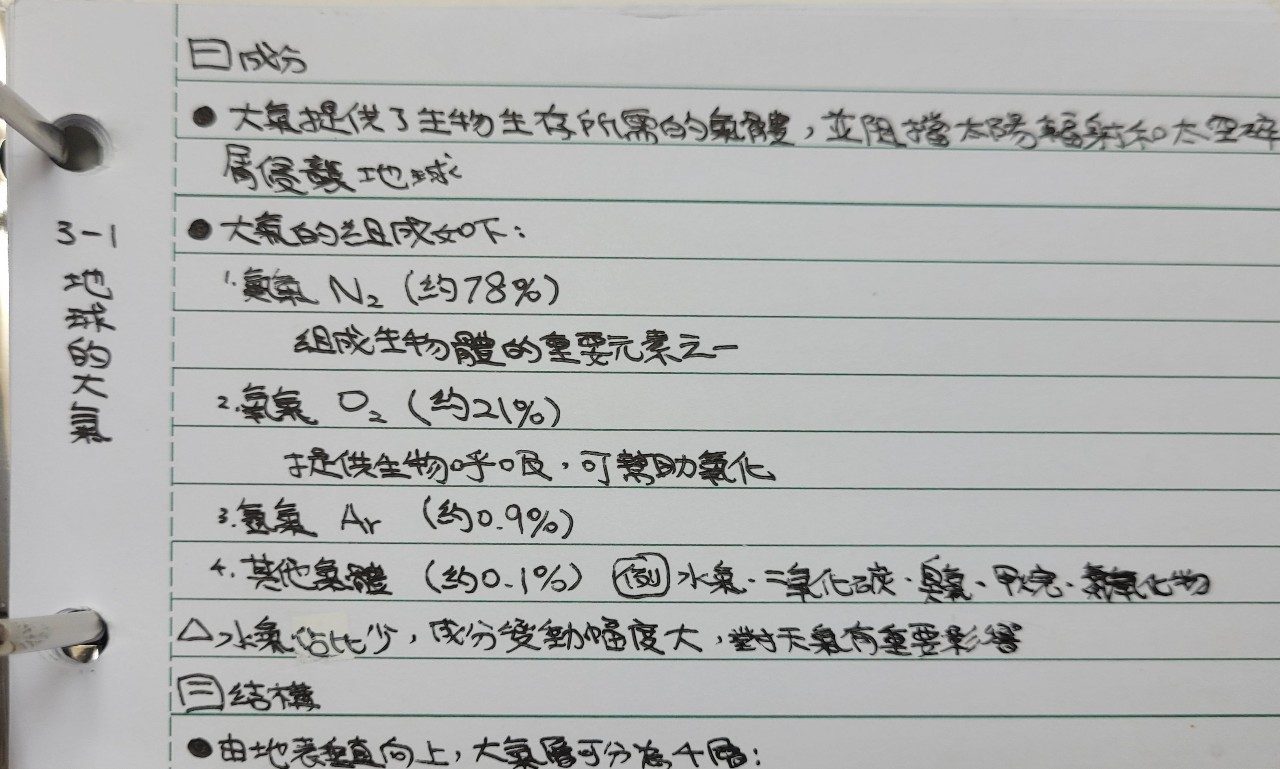 3-1 地球的大氣
二 成分
● 大氣提供了生物生存所需的氣體，並阻擋太陽輻射和太空碎
屑侵襲地球
● 大氣的組成如下：
1. 氮氣 N₂ (約78%)
組成生物體的重要元素之一
2. 氧氣 O₂ (約21%)
提供生物呼吸，可幫助氧化
3. 氬氣 Ar (約0.9%)
4. 其他氣體 (約0.1%) 例 水氣、二氧化碳、臭氧、甲烷、氮氧化物
△水氣佔比少，成分變動幅度大，對天氣有重要影響
三 結構
● 由地表垂直向上，大氣層可分為4層：